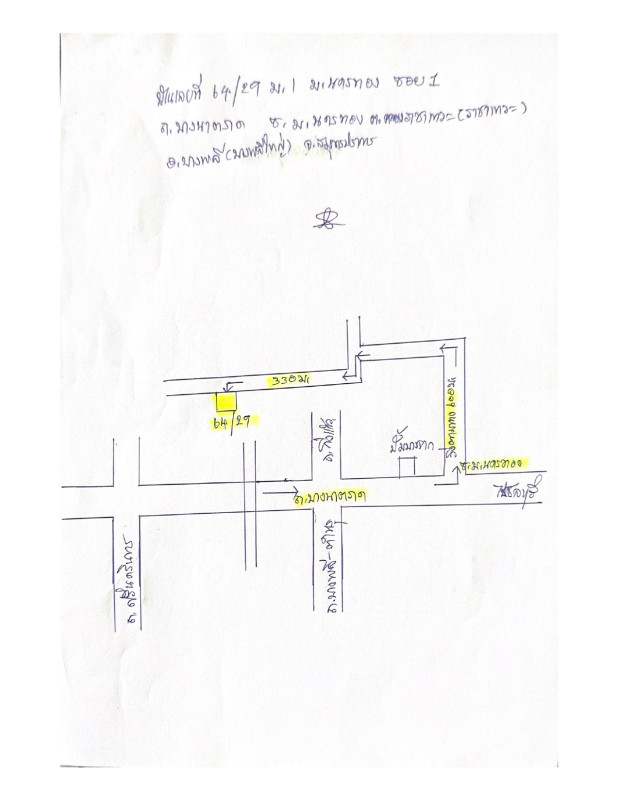 บ้านเลขที่ 64/29 ม.1 ม.นครทอง ซอย 1
ถ.บางนาตราด ซ.ม.นครทอง ต.ราชาเทวะ (ราชาเทวะ)
อ.บางพลี (บางพลีใหญ่) จ.สมุทรปราการ
330 ม.
64/29
ถ.กิ่งแก้ว
ปั๊มบางจาก
ซ.ม.นครทอง
ถ.บางนาตราด
ไปชลบุรี
ถ.ศรีนครินทร์
ถ.บางพลี-ตำหรุ